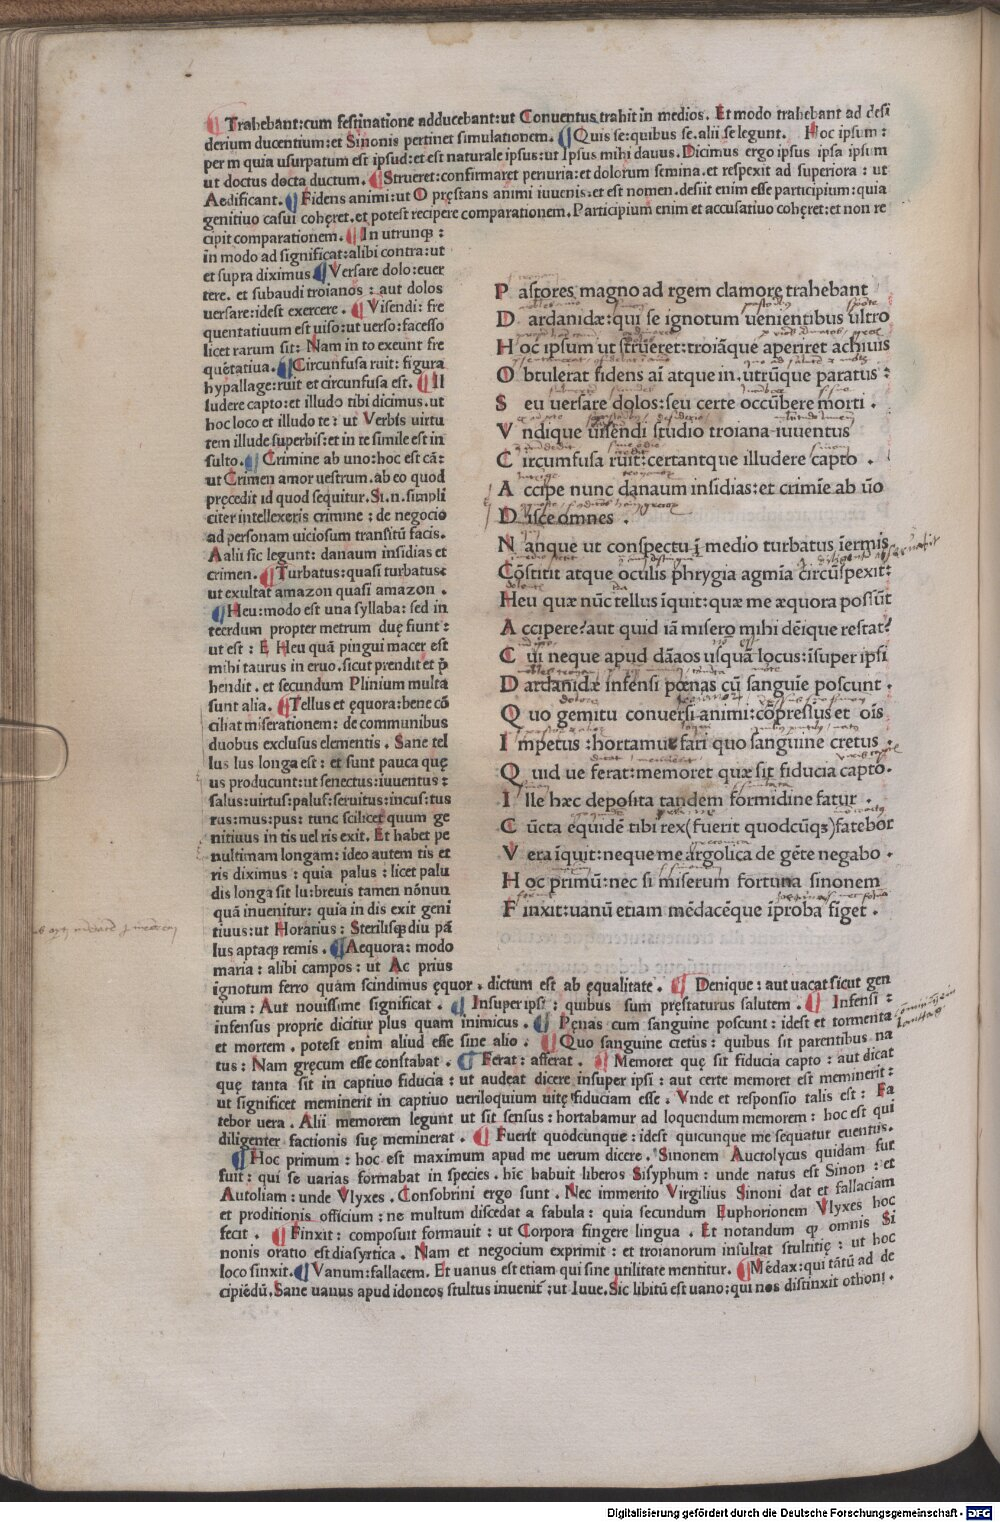 Trahebant:cum festinatione adducebant:ut Conuentus trahit in medios. Et modo trahebant ad desi
derium ducentium:et Sinonis pertinet simulationem. Quis se:quibus se.alii se legunt. Hoc ipsum:
per m quia usurpatum est ipsud:et est naturale ipsus:ut Ipsus mihi dauus. Dicimus ergo ipsus ipsa ipsum
ut doctus docta ductum. Strueret:confirmaret periuria:et dolorum semina.et respexit ad superiora: ut
Aedificant. Fidens animi:ut O pręstans animi iuuenis.et est nomen.desiit enim esse participium:quia
genitiuo casui cohęret.et potest recipere comparationem.Participium enim et accusatiuo cohęret:et non re
cipit comparationem. In utrunqꝫ:
in modo ad significat:alibi contra:ut
et supra diximus Versare dolo:euer
tere. et subaudi troianos: aut dolos
uersare:idest exercere. Visendi: fre
quentatiuum est uiso:ut uerso:facesso
licet rarum sit: Nam in to exeunt fre
quētatiua. Circunfusa ruit: figura
hypallage:ruit et circunfusa est. Il
ludere capto:et illudo tibi dicimus.ut
hoc loco et illudo te: ut Verbis uirtu
tem illude superbis:et in te simile est in
sulto. Crimine ab uno:hoc est cā:
ut Crimen amor uestrum.ab eo quod
pręcedit id quod sequitur.Si.n.simpli
citer intellexeris crimine: de negocio
ad personam uiciosum transitū facis.
Aalii sic legunt: danaum insidias et
crimen. Turbatus:quasi turbatus:
ut exultat amazon quasi amazon.
Heu:modo est una syllaba: sed in
terdum propter metrum duę fiunt:
ut est: E Heu quā pingui macer est
mihi taurus in eruo.sicut prendit et p̄
hendit. et secundum Plinium multa
sunt alia. Tellus et ęquora:bene cō
ciliat miserationem: de communibus
duobus exclusus elementis. Sane tel
lus lus longa est: et sunt pauca quę
us producunt:ut senectus:iuuentus:
salus:uirtus:palus:seruitus:incus:tus
rus:mus:pus: tunc scilicet quum ge
nitiuus in tis uel ris exit. Et habet pe
nultimam longam: ideo autem tis et
ris diximus: quia palus: licet palu
dis longa sit lu:breuis tamen nōnun
quā inuenitur: quia in dis exit geni
tiuus:ut Horatius: Sterilisqꝫ diu pa
lus aptaqꝫ remis. Aequora: modo
maria: alibi campos: ut Ac prius
P astores magno ad rgem clamorę trahebant
D ardanidæ:qui se ignotum uenientibus ultro
H oc ipsum ut strueret:troiāque aperiret achiuis
O btulerat fidens aī atque in.utrūque paratus:
S eu uersare dolos:seu certe occūbere morti.
V ndique uisendi studio troiana iuuentus
C ircumfusa ruit:certantque illudere capto.
A ccipe nunc danaum insidias:et crimīe ab ūo
D isce omnes.
N anque ut conspectu ī medio turbatus īermis
Cōstitit atque oculis phrygia agmīa circūspexit:
Heu quæ nūc tellus īquit:quæ me æquora possūt
A ccipere?aut quid iā misero mihi dēique restat?
C ui neque apud dāaos usquā locus:īsuper ipsi
D ardanidæ infensi pœnas cū sanguīe poscunt.
Q uo gemitu conuersi animi:cōpressus et oīs
I mpetus:hortamur fari quo sanguine cretus.
Q uid ue ferat:memoret quæ sit fiducia capto.
I lle hæc deposita tandem formidine fatur.
C ūcta equidē tibi rex(fuerit quodcūqꝫ)fatebor
V era īquit:neque me argolica de gēte negabo.
H oc primū:nec si miserum fortuna sinonem
F inxit:uanū etiam mēdacēque īproba fīget.
ignotum ferro quàm scindimus ęquor. dictum est ab equalitate. Denique: aut uacat sicut gen
tium: Aut nouissime significat. Insuper ipsi: quibus sum pręstaturus salutem. Infensi:
infensus proprie dicitur plus quam inimicus. Penas cum sanguine poscunt: idest et tormenta
et mortem. potest enim aliud esse sine alio. Quo sanguine cretus: quibus sit parentibus na
tus: Nam gręcum esse constabat. Ferat: afferat. Memoret quę sit fiducia capto: aut dicat
quę tanta sit in captiuo fiducia: ut audeat dicere insuper ipsi: aut certe memoret est meminerit:
ut significet meminerit in captiuo ueriloquium uitę fiduciam esse. Vnde et responsio talis est: Fa
tebor uera. Alii memorem legunt ut sit sensus: hortabamur ad loquendum memorem: hoc est qui
diligenter factionis suę meminerat. Fuerit quodcunque: idest quicunque me sequatur euentus.
Hoc primum: hoc est maximum apud me uerum dicere. Sinonem Auctolycus quidam fur
fuit: qui se uarias formabat in species. hic habuit liberos Sisyphum: unde natus est Sinon: et
Autoliam: unde Vlyxes. Consobrini ergo sunt. Nec immerito Virgilius Sinoni dat et fallaciam
et proditionis officium: ne multum discedat a fabula: quia secundum Euphorionem Vlyxes hoc
fecit. Finxit: composuit formauit: ut Corpora fingere lingua. Et notandum qp omnis Si
nonis oratio est diasyrtica. Nam et negocium exprimit: et troianorum insultat stultitię: ut hoc
loco sinxit. Vanum:fallacem. Et uanus est etiam qui sine utilitate mentitur. Mēdax:qui tātū ad de
cipiēdū.Sane uanus apud idoneos stultus inuenit:ut Iuue.Sic libitū est uano:qui nos distinxit othoni.
Digitalisierung gefördert durch die Deutsche Forschungsgemeinschaft - DFG